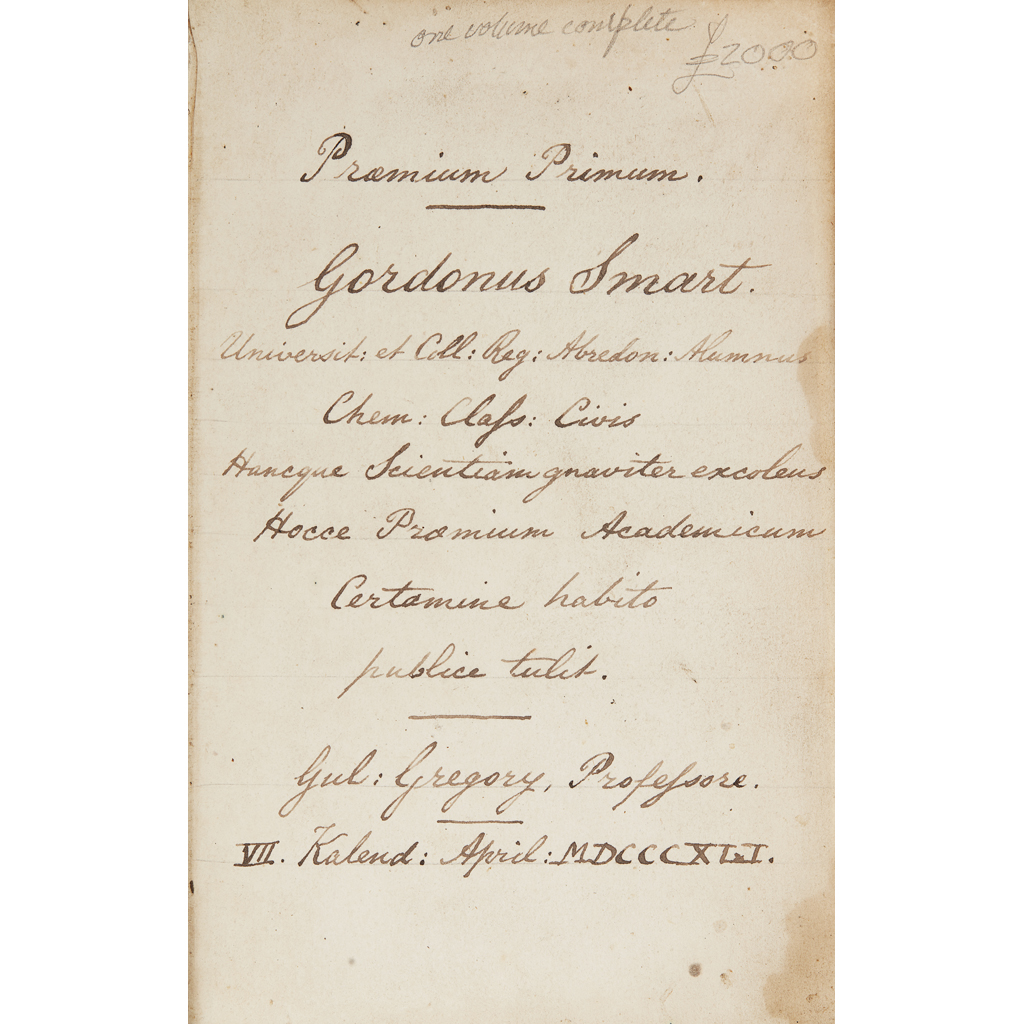 one volume complete
£2000
Præmium Primum.
Gordonus Smart.
Universit: et Coll: Reg: Abredon: Alumnus
Chem: Claſs: Civis
Hancque Scientiam gnaviter excolens
Hocce Præmium Academicum
Certamine habito
publice tulit.
Gul: Gregory, Profeſsore.
VII. Kalend: April: MDCCCXLI.